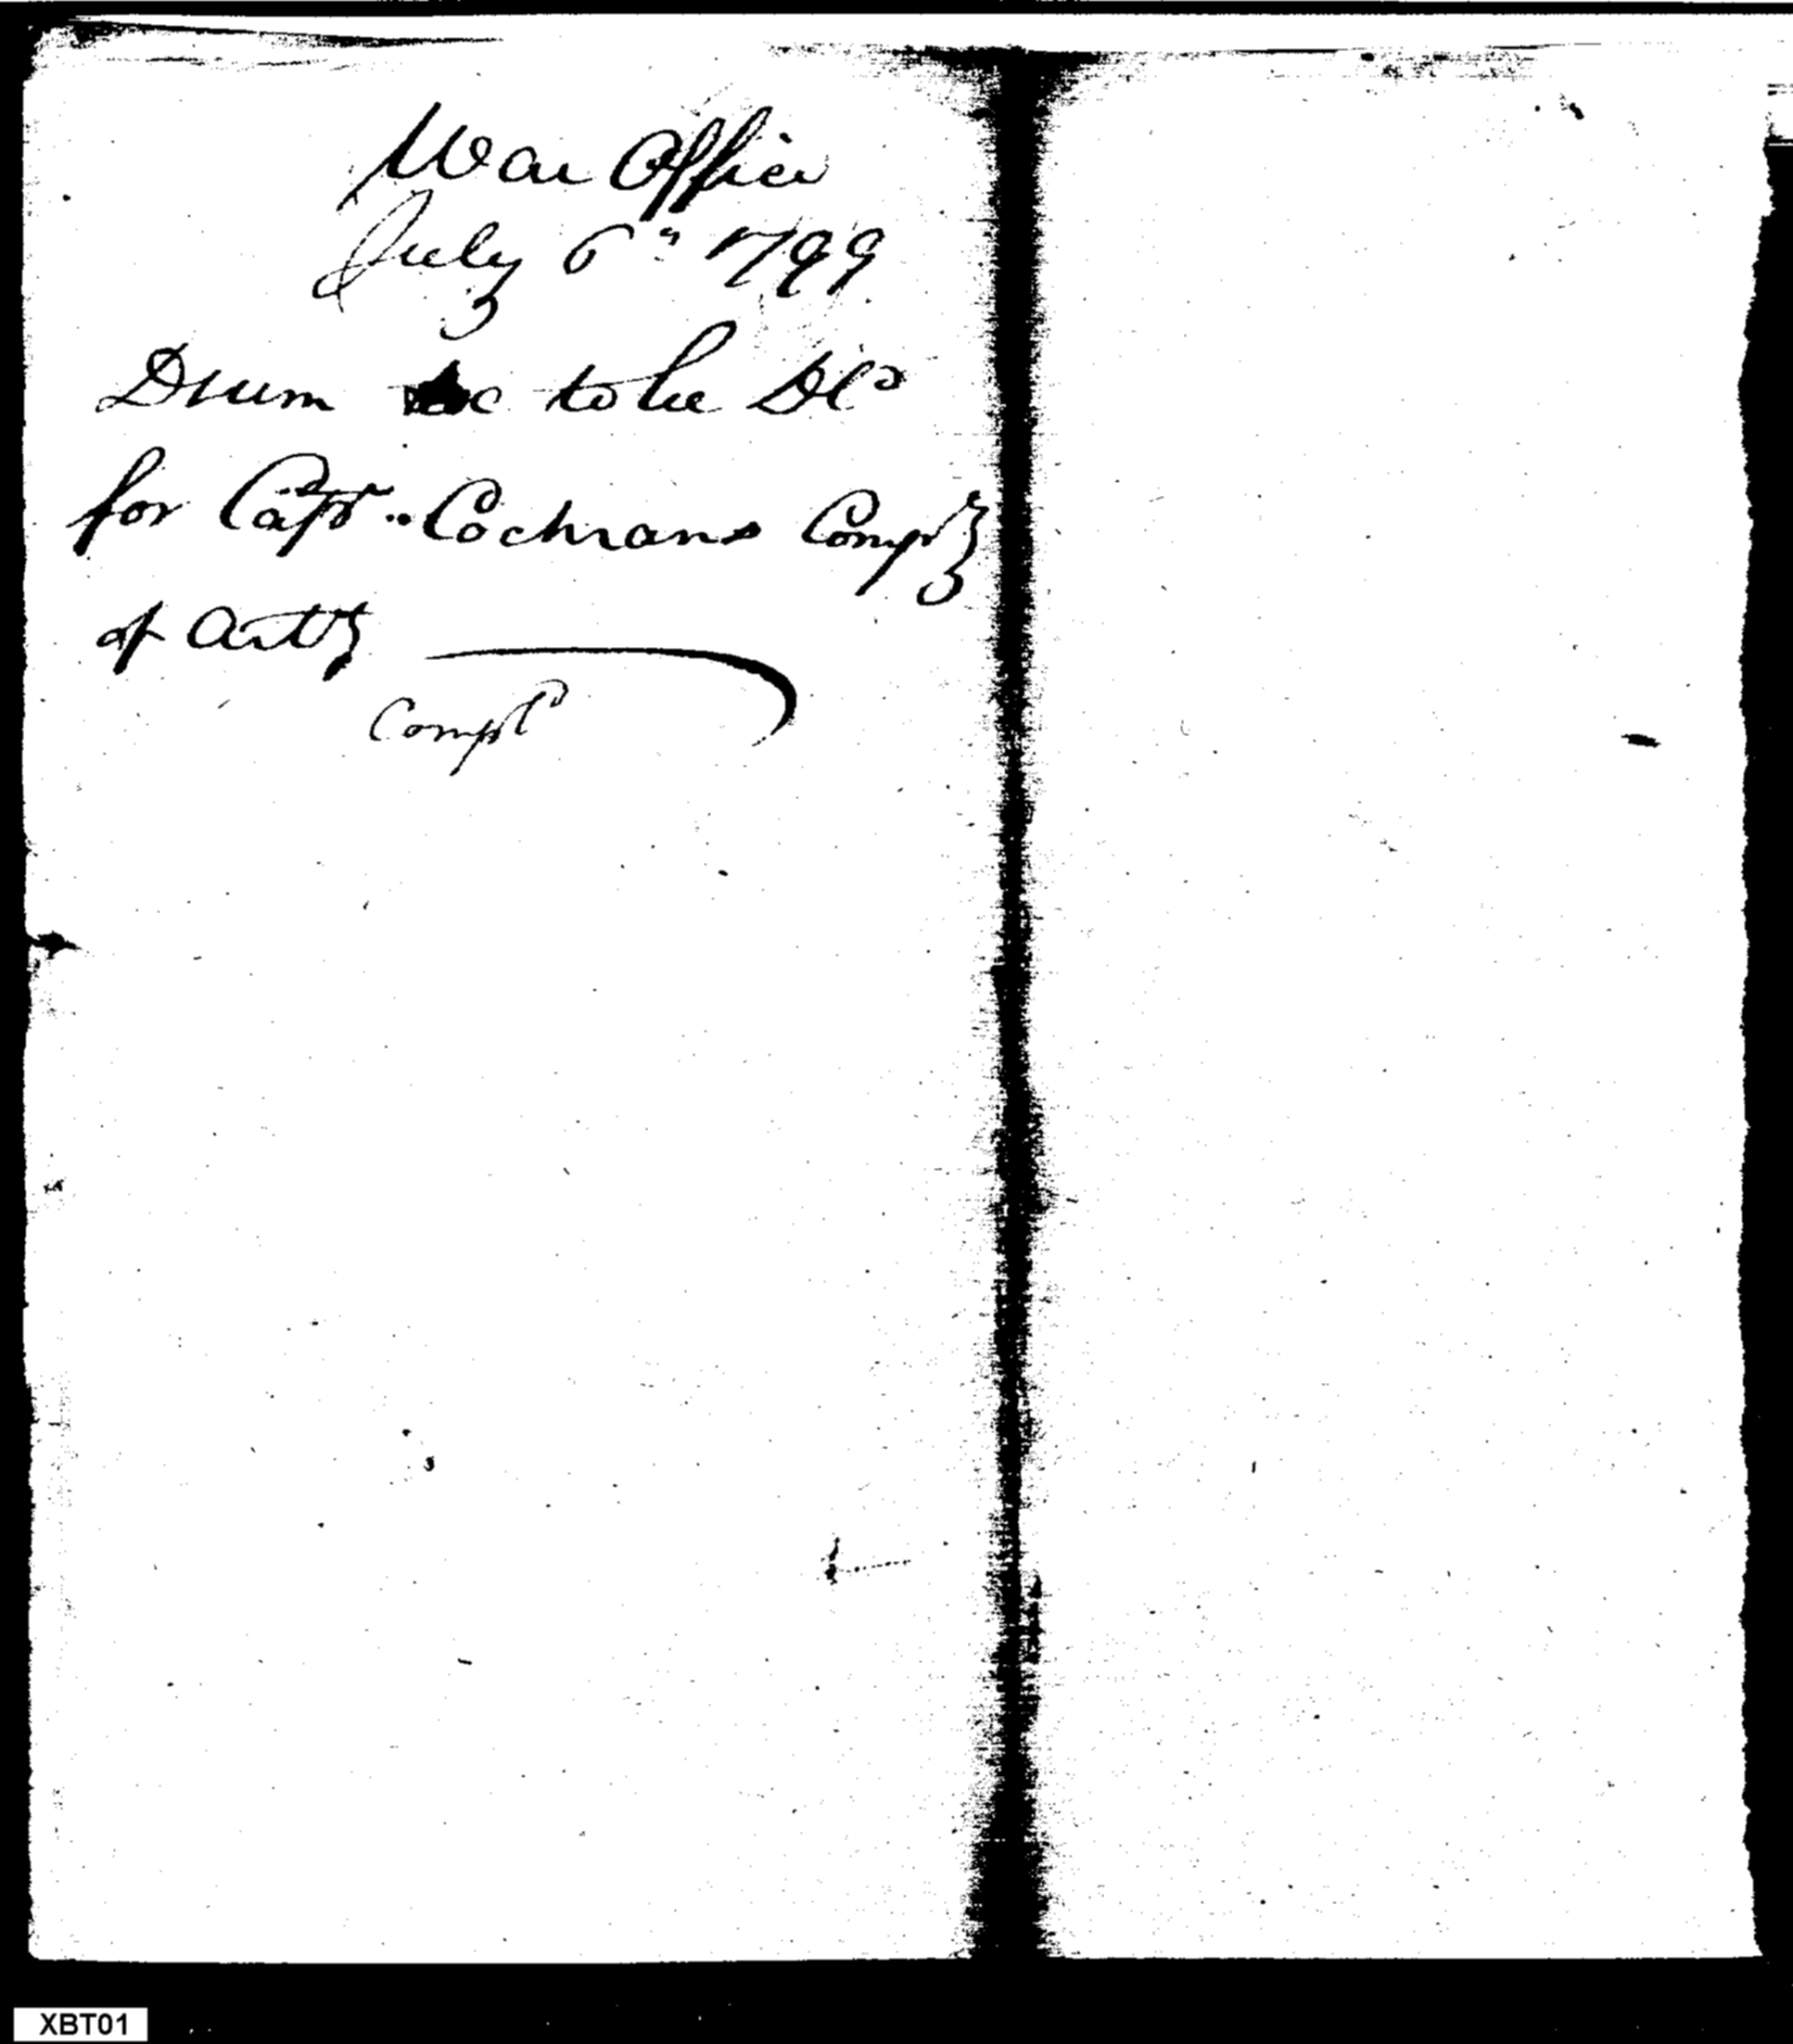 War Office
July 6th 1799
Drum &c to be Dld
for Capt.. Cochrans Compy
of Arty
Compld
XBT01